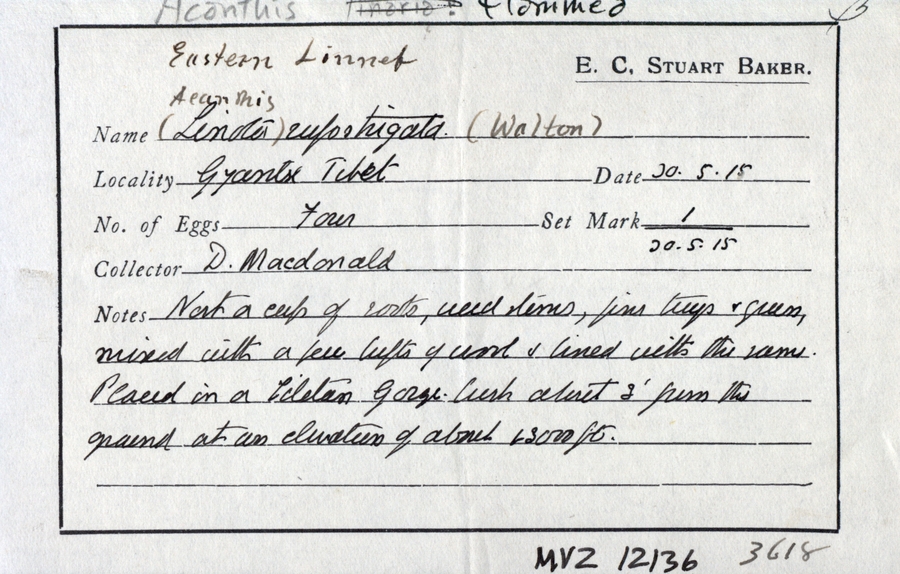 Acanthis Linaria? flammea
Eastern Linnet
E. C. STUART BAKER.
Acanthis
Name (Linota) rufostrigata. (Walton)
Locality Gyantse Tibet Date 20. 5. 15
No. of Eggs Four Set Mark 1
20.5.15
Collector D. Macdonald
Notes Nest a cup of roots, weed stems, fine twigs & grass,
mixed with a few tufts of wool & lined with the same.
Placed in a Tibetan Gorse-bush about 3' from the
ground at an elevation of about 13000 ft.
MVZ 12136 3618